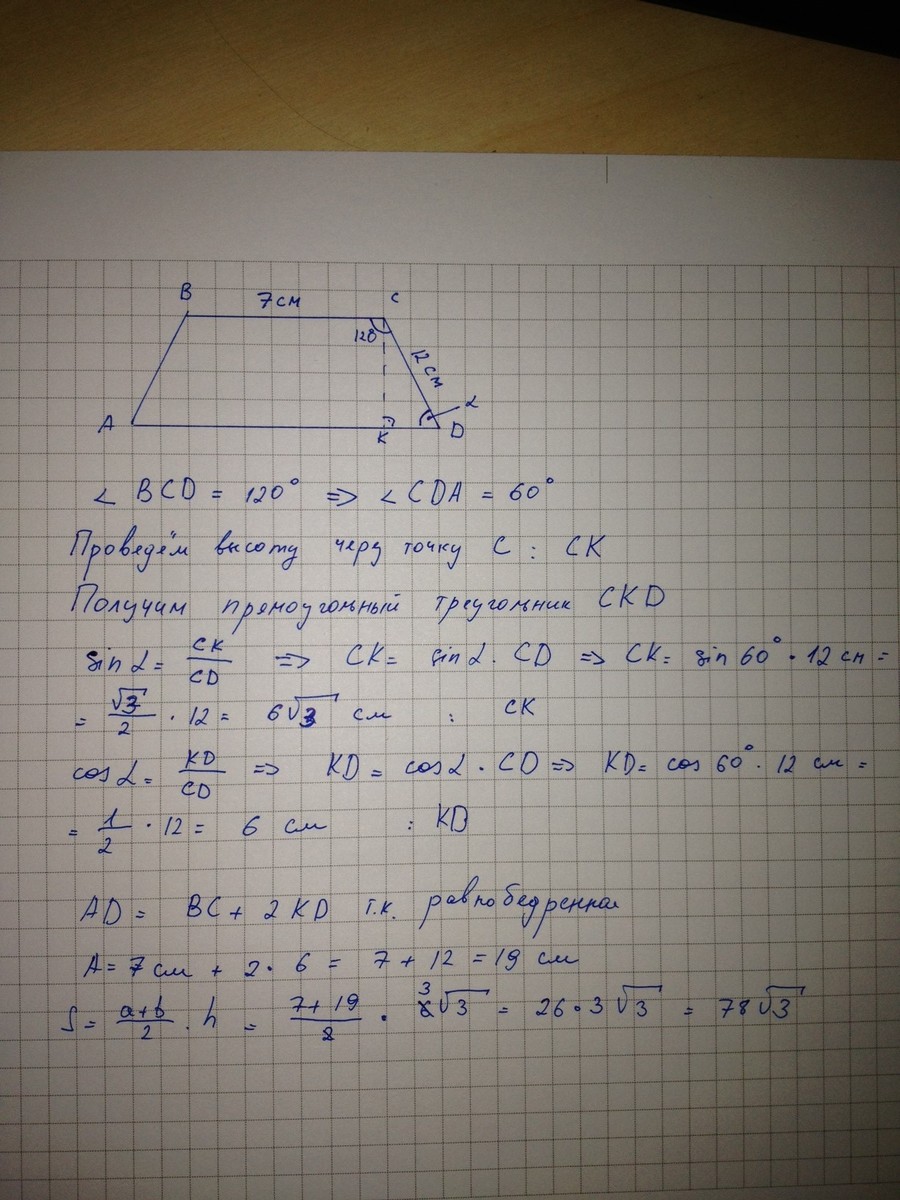 B 7см C
120° 12 см
A K D α
∠ BCD = 120° => ∠ CDA = 60°
Проведём высоту через точку C : CK
Получим прямоугольный треугольник CKD
sin α = CK/CD => CK = sin α · CD => CK = sin 60° · 12 см =
= √3/2 · 12 = 6√3 см : CK
cos α = KD/CD => KD = cos α · CD => KD = cos 60° · 12 см =
= 1/2 · 12 = 6 см : KD
AD = BC + 2 KD т.к. равнобедренная
A = 7 см + 2 · 6 = 7 + 12 = 19 см
S = a+b/2 · h = 7+19/2 · 6 3 √3 = 26 · 3 √3 = 78 √3